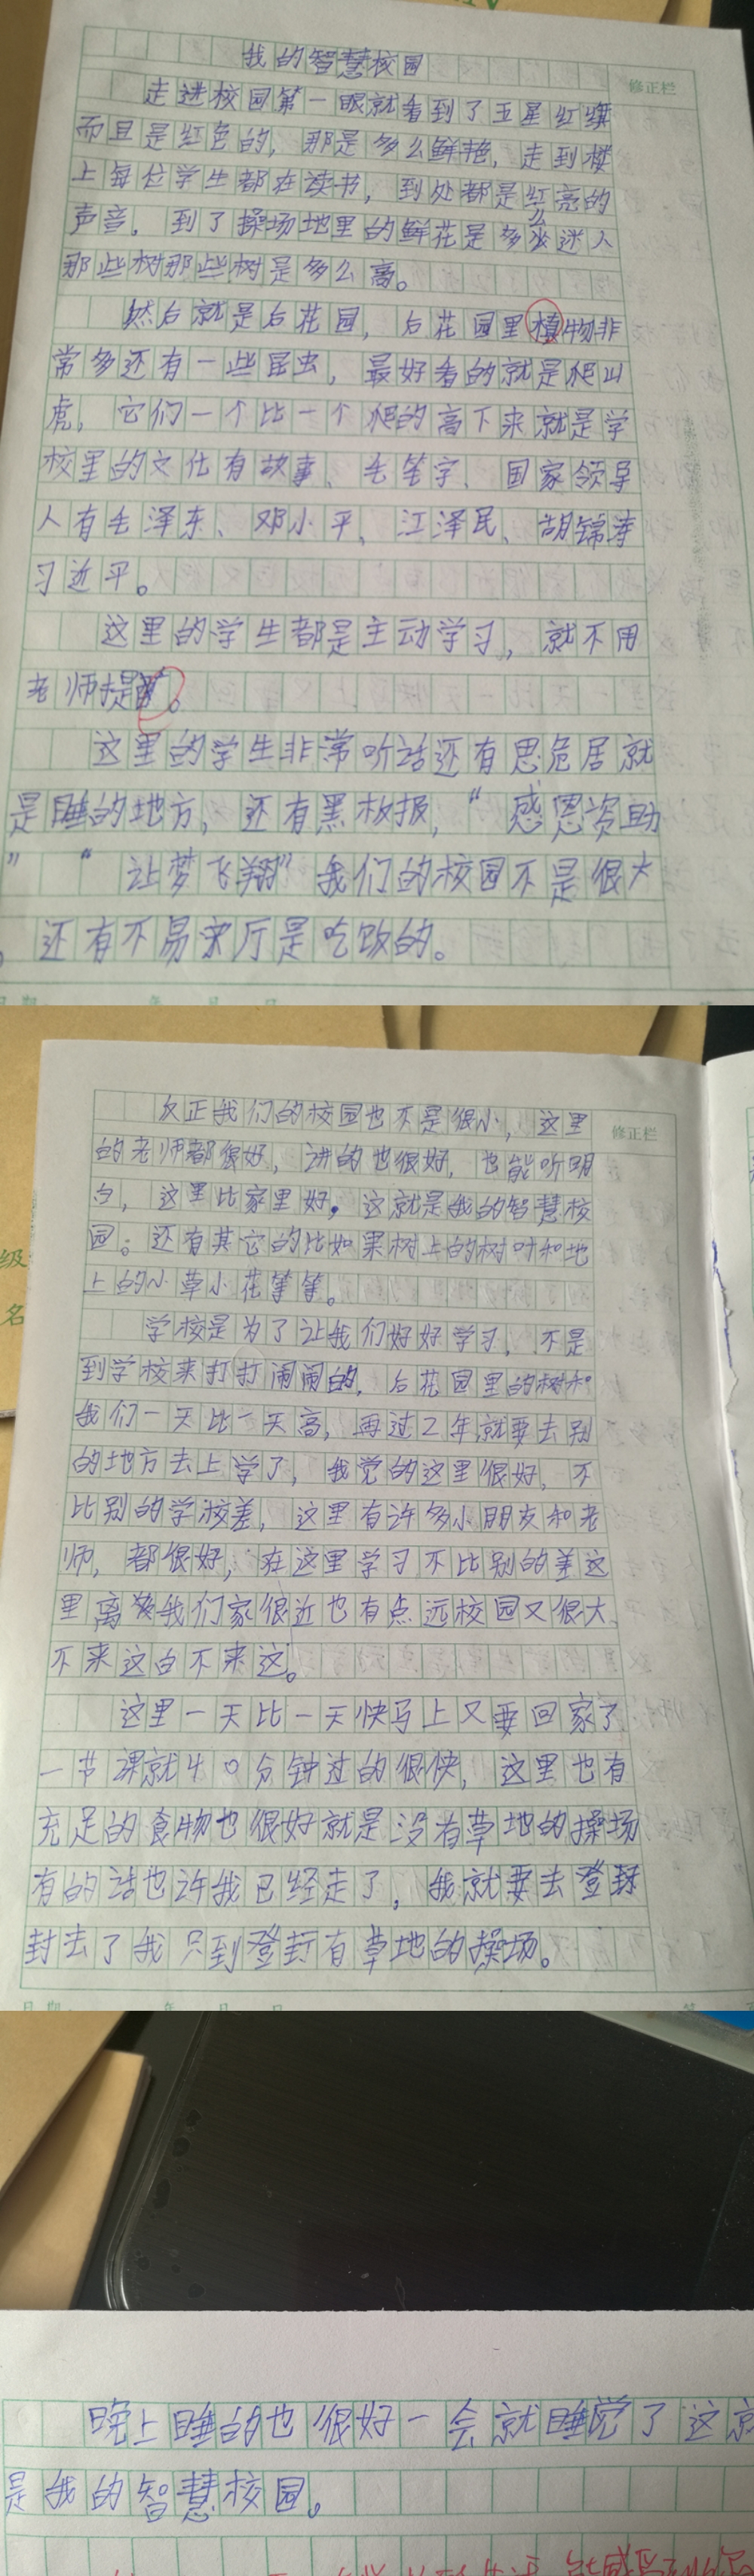 我的智慧校园
修正栏
走进校园第一眼就看到了五星红旗
而且是红色的，那是多么鲜艳，走到楼
上每位学生都在读书，到处都是红亮的
声音，到了操场地里的鲜花是多么迷人
那些树那些树是多么高。
然后就是后花园，后花园里植物非
常多还有一些昆虫，最好看的就是爬山
虎，它们一个比一个爬的高下来就是学
校里的文化有故事、毛笔字、国家领导
人有毛泽东、邓小平、江泽民、胡锦涛
习近平。
这里的学生都是主动学习，就不用
老师提。
这里的学生非常听话还有思危居就
是睡的地方，还有黑板报，“感恩资助
”“让梦飞翔”我们的校园不是很大
，还有不易宋厅是吃饭的。
反正我们的校园也不是很小，这里
修正栏
的老师都很好，讲的也很好，也能听明
白，这里比家里好，这就是我的智慧校
园。还有其它的比如果树上的树叶和地
上的小草小花等等。
学校是为了让我们好好学习，不是
到学校来打打闹闹的，后花园里的树和
我们一天比一天高，再过2年就要去别
的地方去上学了，我觉的这里很好，不
比别的学校差，这里有许多小朋友和老
师，都很好，在这里学习不比别的差这
里离我们家很近也有点远校园又很大
不来这白不来这。
这里一天比一天快马上又要回家了
一节课就40分钟过的很快，这里也有
充足的食物也很好就是没有草地的操场
有的话也许我已经走了，我就要去登封
封去了我只到登封有草地的操场。
级
名
晚上睡的也很好一会就睡觉了这就
是我的智慧校园。